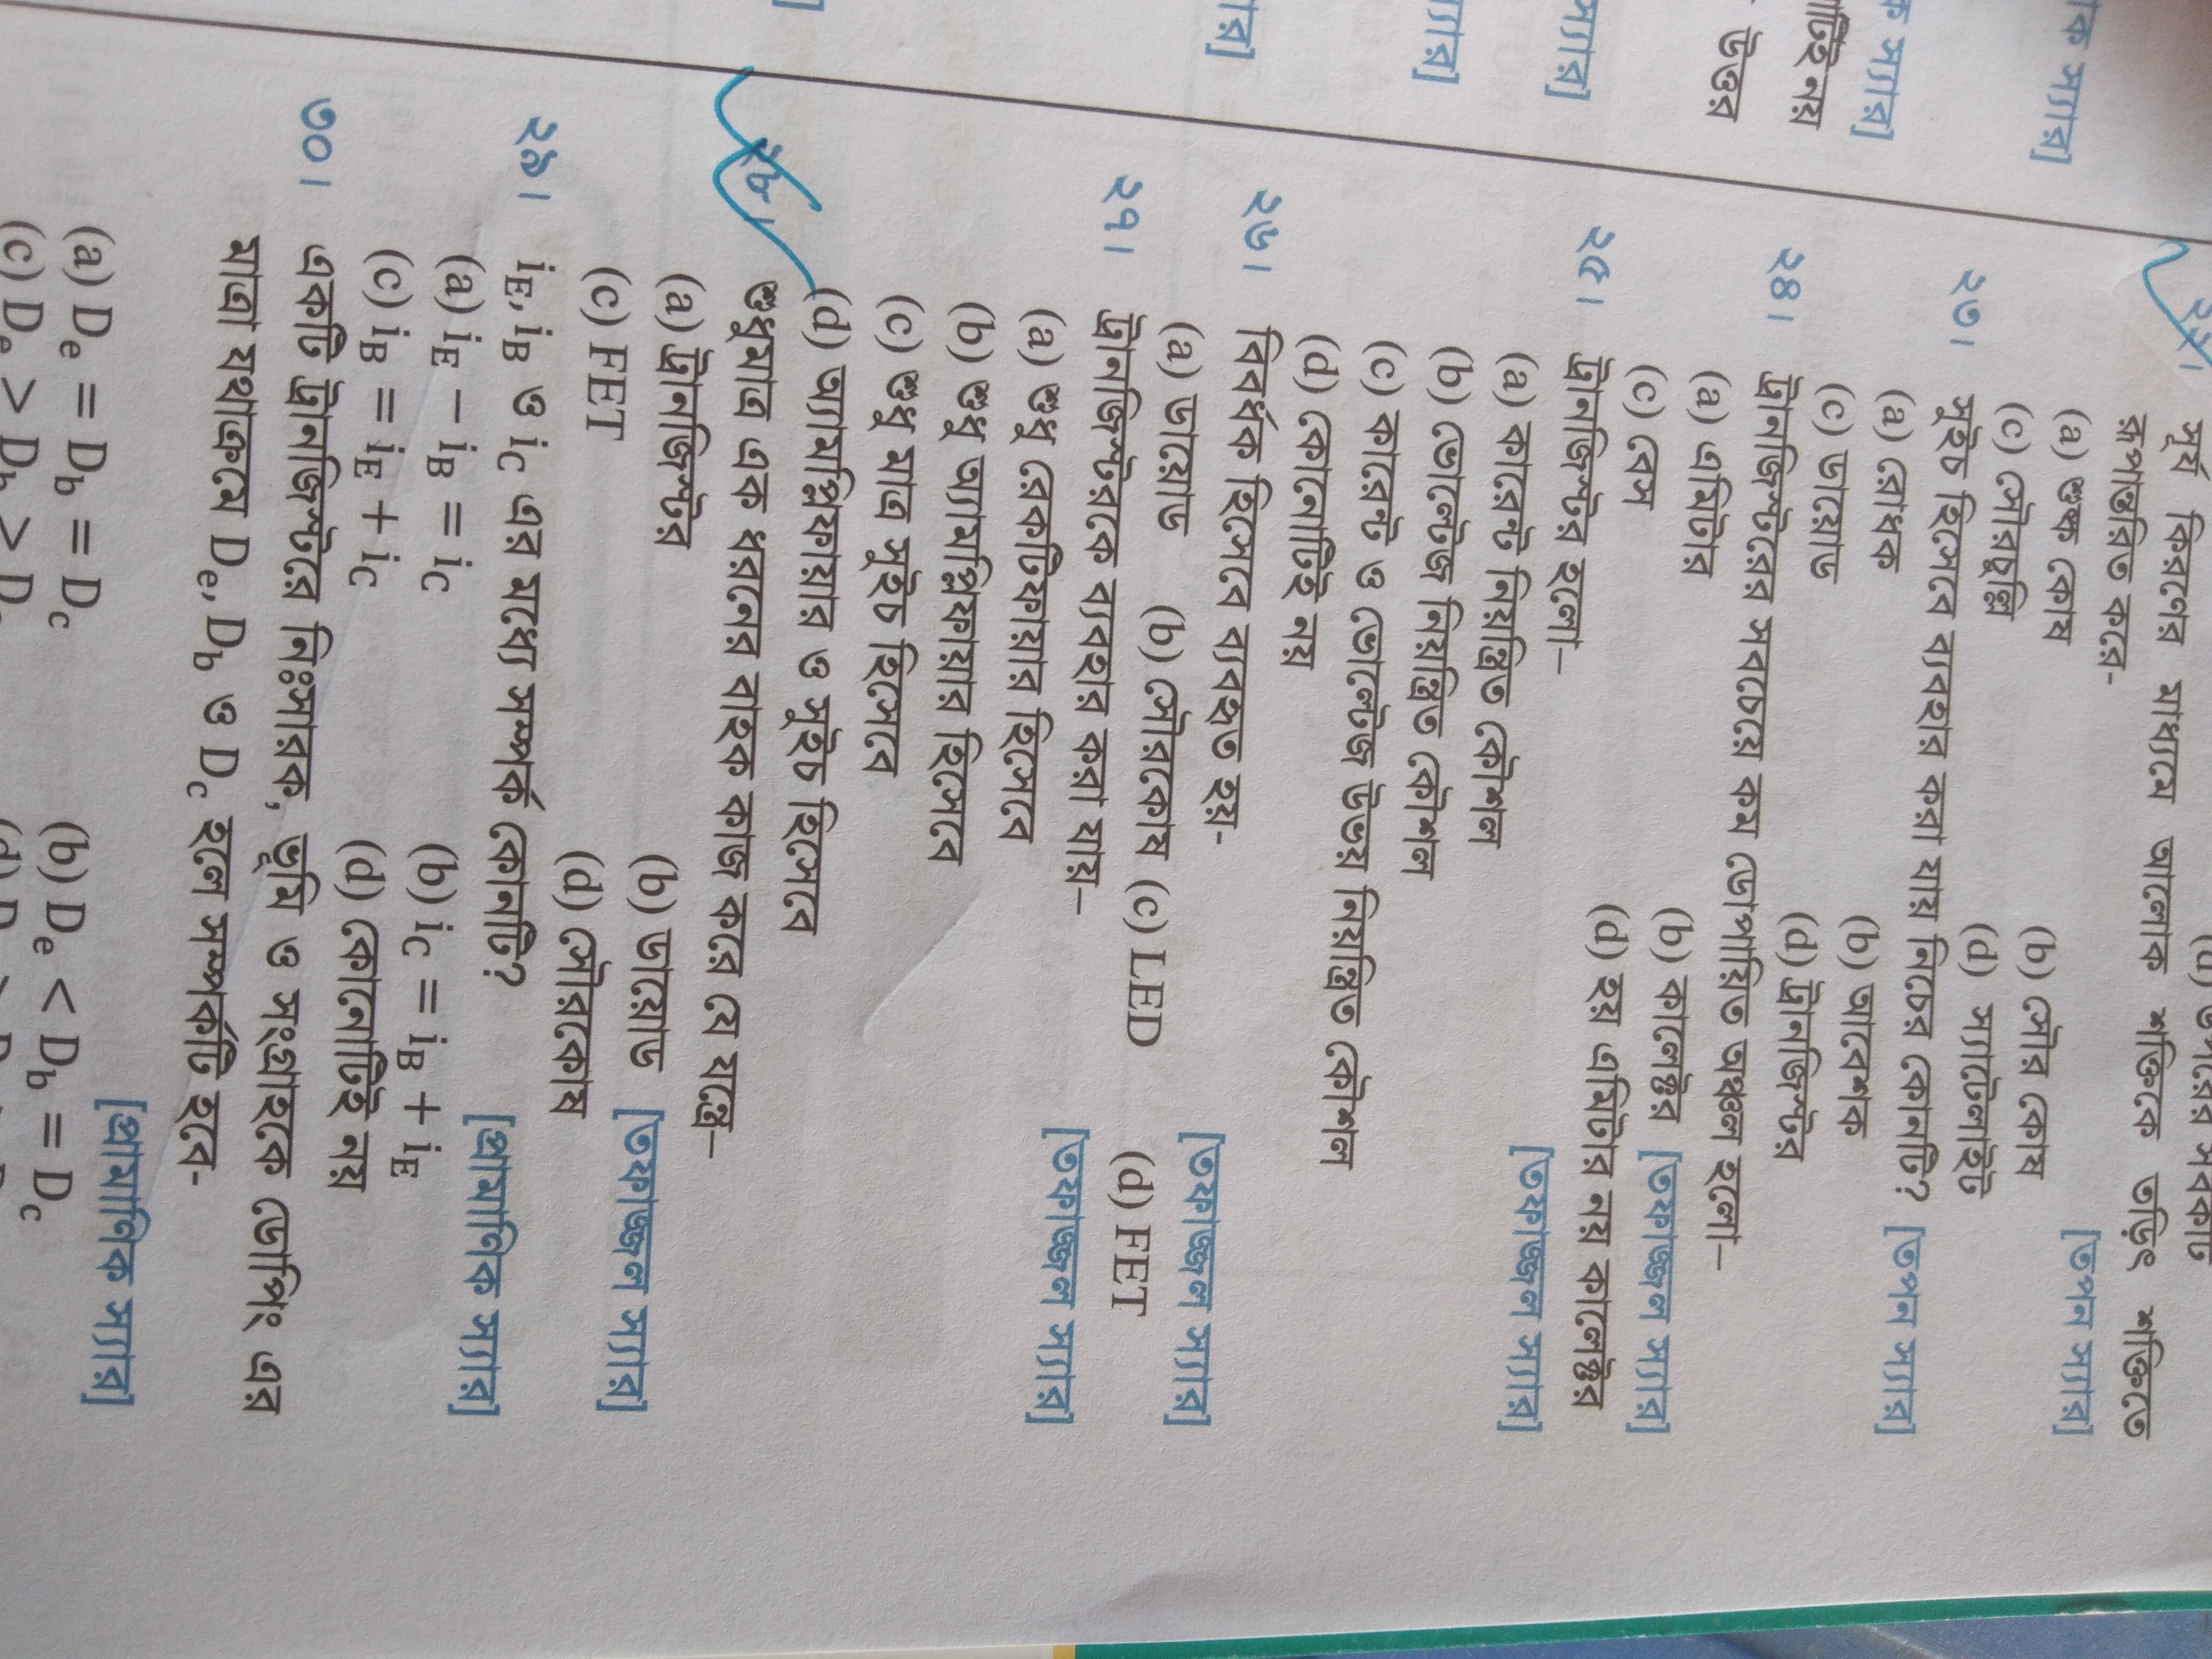 ২২। সূর্য কিরণের মাধ্যমে আলোক শক্তিকে তড়িৎ শক্তিতে
রূপান্তরিত করে- [তপন স্যার]
(a) শুষ্ক কোষ (b) সৌর কোষ
(c) সৌরচুল্লি (d) স্যাটেলাইট
২৩। সুইচ হিসেবে ব্যবহার করা যায় নিচের কোনটি? [তপন স্যার]
(a) রোধক (b) আবেশক
(c) ডায়োড (d) ট্রানজিস্টর
২৪। ট্রানজিস্টরের সবচেয়ে কম ডোপায়িত অঞ্চল হলো–
(a) এমিটার (b) কালেক্টর [তফাজ্জল স্যার]
(c) বেস (d) হয় এমিটার নয় কালেক্টর
২৫। ট্রানজিস্টর হলো– [তফাজ্জল স্যার]
(a) কারেন্ট নিয়ন্ত্রিত কৌশল
(b) ভোল্টেজ নিয়ন্ত্রিত কৌশল
(c) কারেন্ট ও ভোল্টেজ উভয় নিয়ন্ত্রিত কৌশল
(d) কোনোটিই নয়
২৬। বিবর্ধক হিসেবে ব্যবহৃত হয়- [তফাজ্জল স্যার]
(a) ডায়োড (b) সৌরকোষ (c) LED (d) FET
২৭। ট্রানজিস্টরকে ব্যবহার করা যায়– [তফাজ্জল স্যার]
(a) শুধু রেকটিফায়ার হিসেবে
(b) শুধু অ্যামপ্লিফায়ার হিসেবে
(c) শুধু মাত্র সুইচ হিসেবে
(d) অ্যামপ্লিফায়ার ও সুইচ হিসেবে
২৮। শুধুমাত্র এক ধরনের বাহক কাজ করে যে যন্ত্রে–
(a) ট্রানজিস্টর (b) ডায়োড [তফাজ্জল স্যার]
(c) FET (d) সৌরকোষ
২৯। i_E, i_B ও i_C এর মধ্যে সম্পর্ক কোনটি? [প্রামানিক স্যার]
(a) i_E − i_B = i_C (b) i_C = i_B + i_E
(c) i_B = i_E + i_C (d) কোনোটিই নয়
৩০। একটি ট্রানজিস্টরের নিঃসারক, ভূমি ও সংগ্রাহকে ডোপিং এর
মাত্রা যথাক্রমে D_e, D_b ও D_c হলে সম্পর্কটি হবে-
[প্রামানিক স্যার]
(a) D_e = D_b = D_c (b) D_e < D_b = D_c
(c) D_e > D_b >